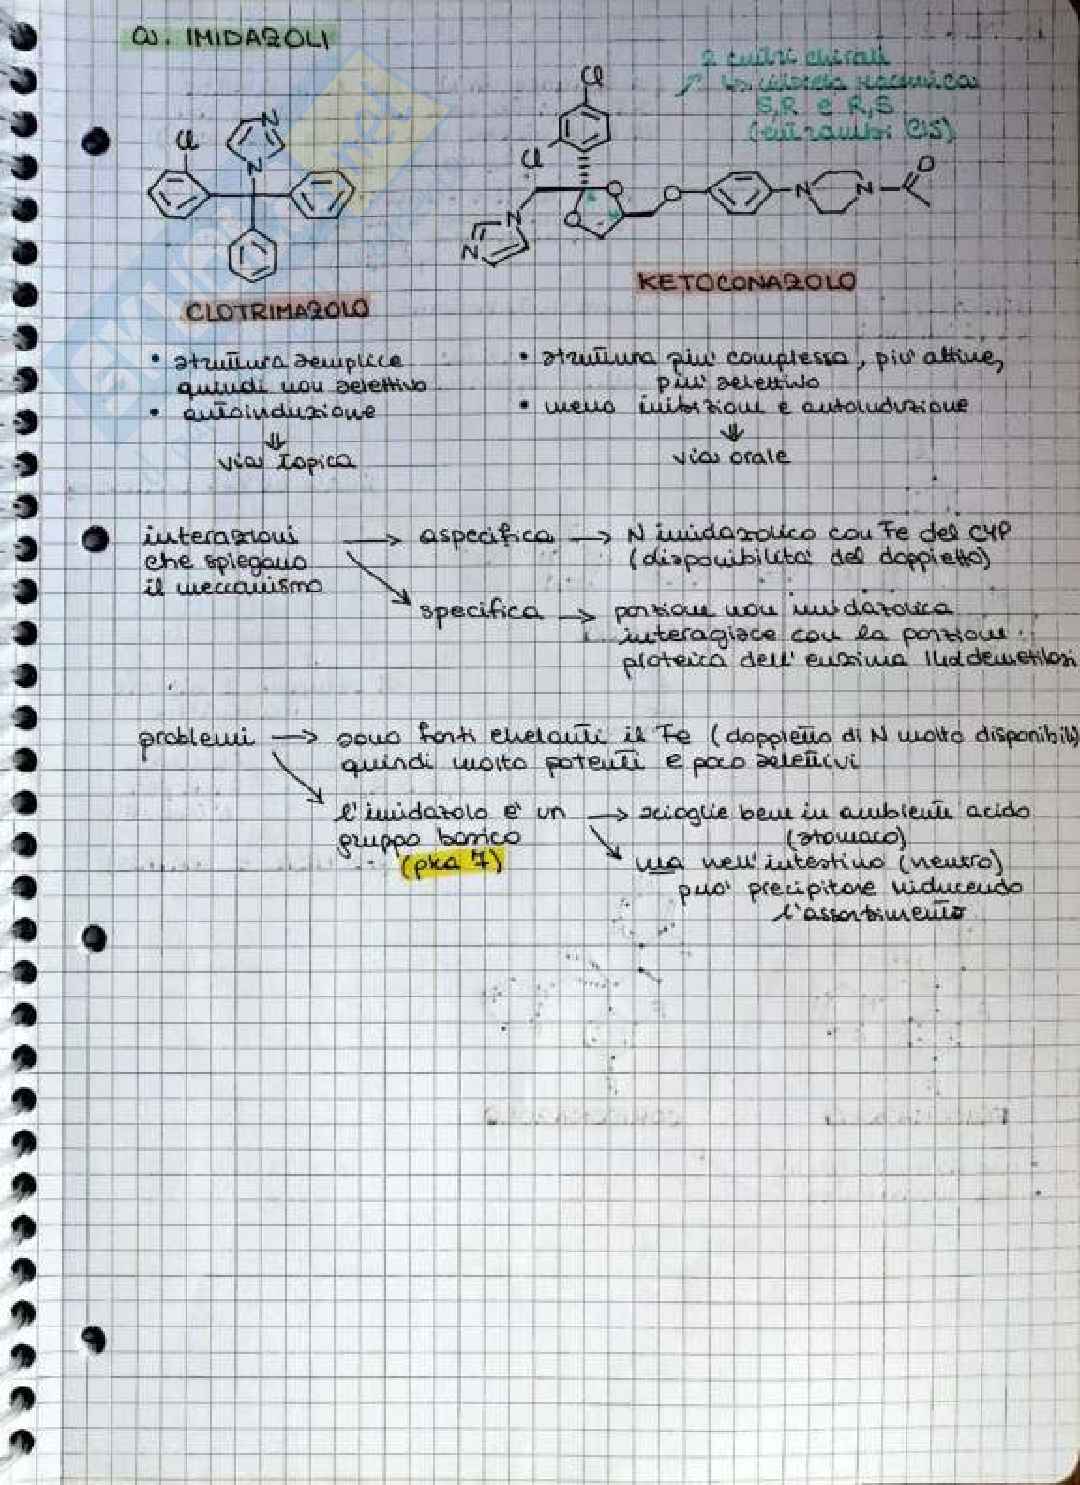 a. IMIDAZOLI
2 centri chirali
↳ miscela racemica
S,R e R,S
(entrambi CIS)
Cl
N
N
Cl
Cl
O
O
O
N
N
O
N
N
CLOTRIMAZOLO
KETOCONAZOLO
• struttura semplice
quindi non selettivo
• autoinduzione
⇓
via topica
• struttura piu' complessa, piu' affine,
piu' selettivo
• meno inibizioni e autoinduzione
⇓
via orale
interazioni → aspecifica → N imidazolico con Fe del CYP
che spiegano (disponibilita' del doppietto)
il meccanismo
specifica → porzione non imidazolica
interagisce con la porzione
proteica dell'enzima 14α demetilasi
problemi → sono forti chelanti il Fe (doppietto di N molto disponibile)
quindi molto potenti e poco selettivi
l'imidazolo e' un → scioglie bene in ambiente acido
gruppo basico (stomaco)
(pka 7) ma nell'intestino (neutro)
puo' precipitare riducendo
l'assorbimento